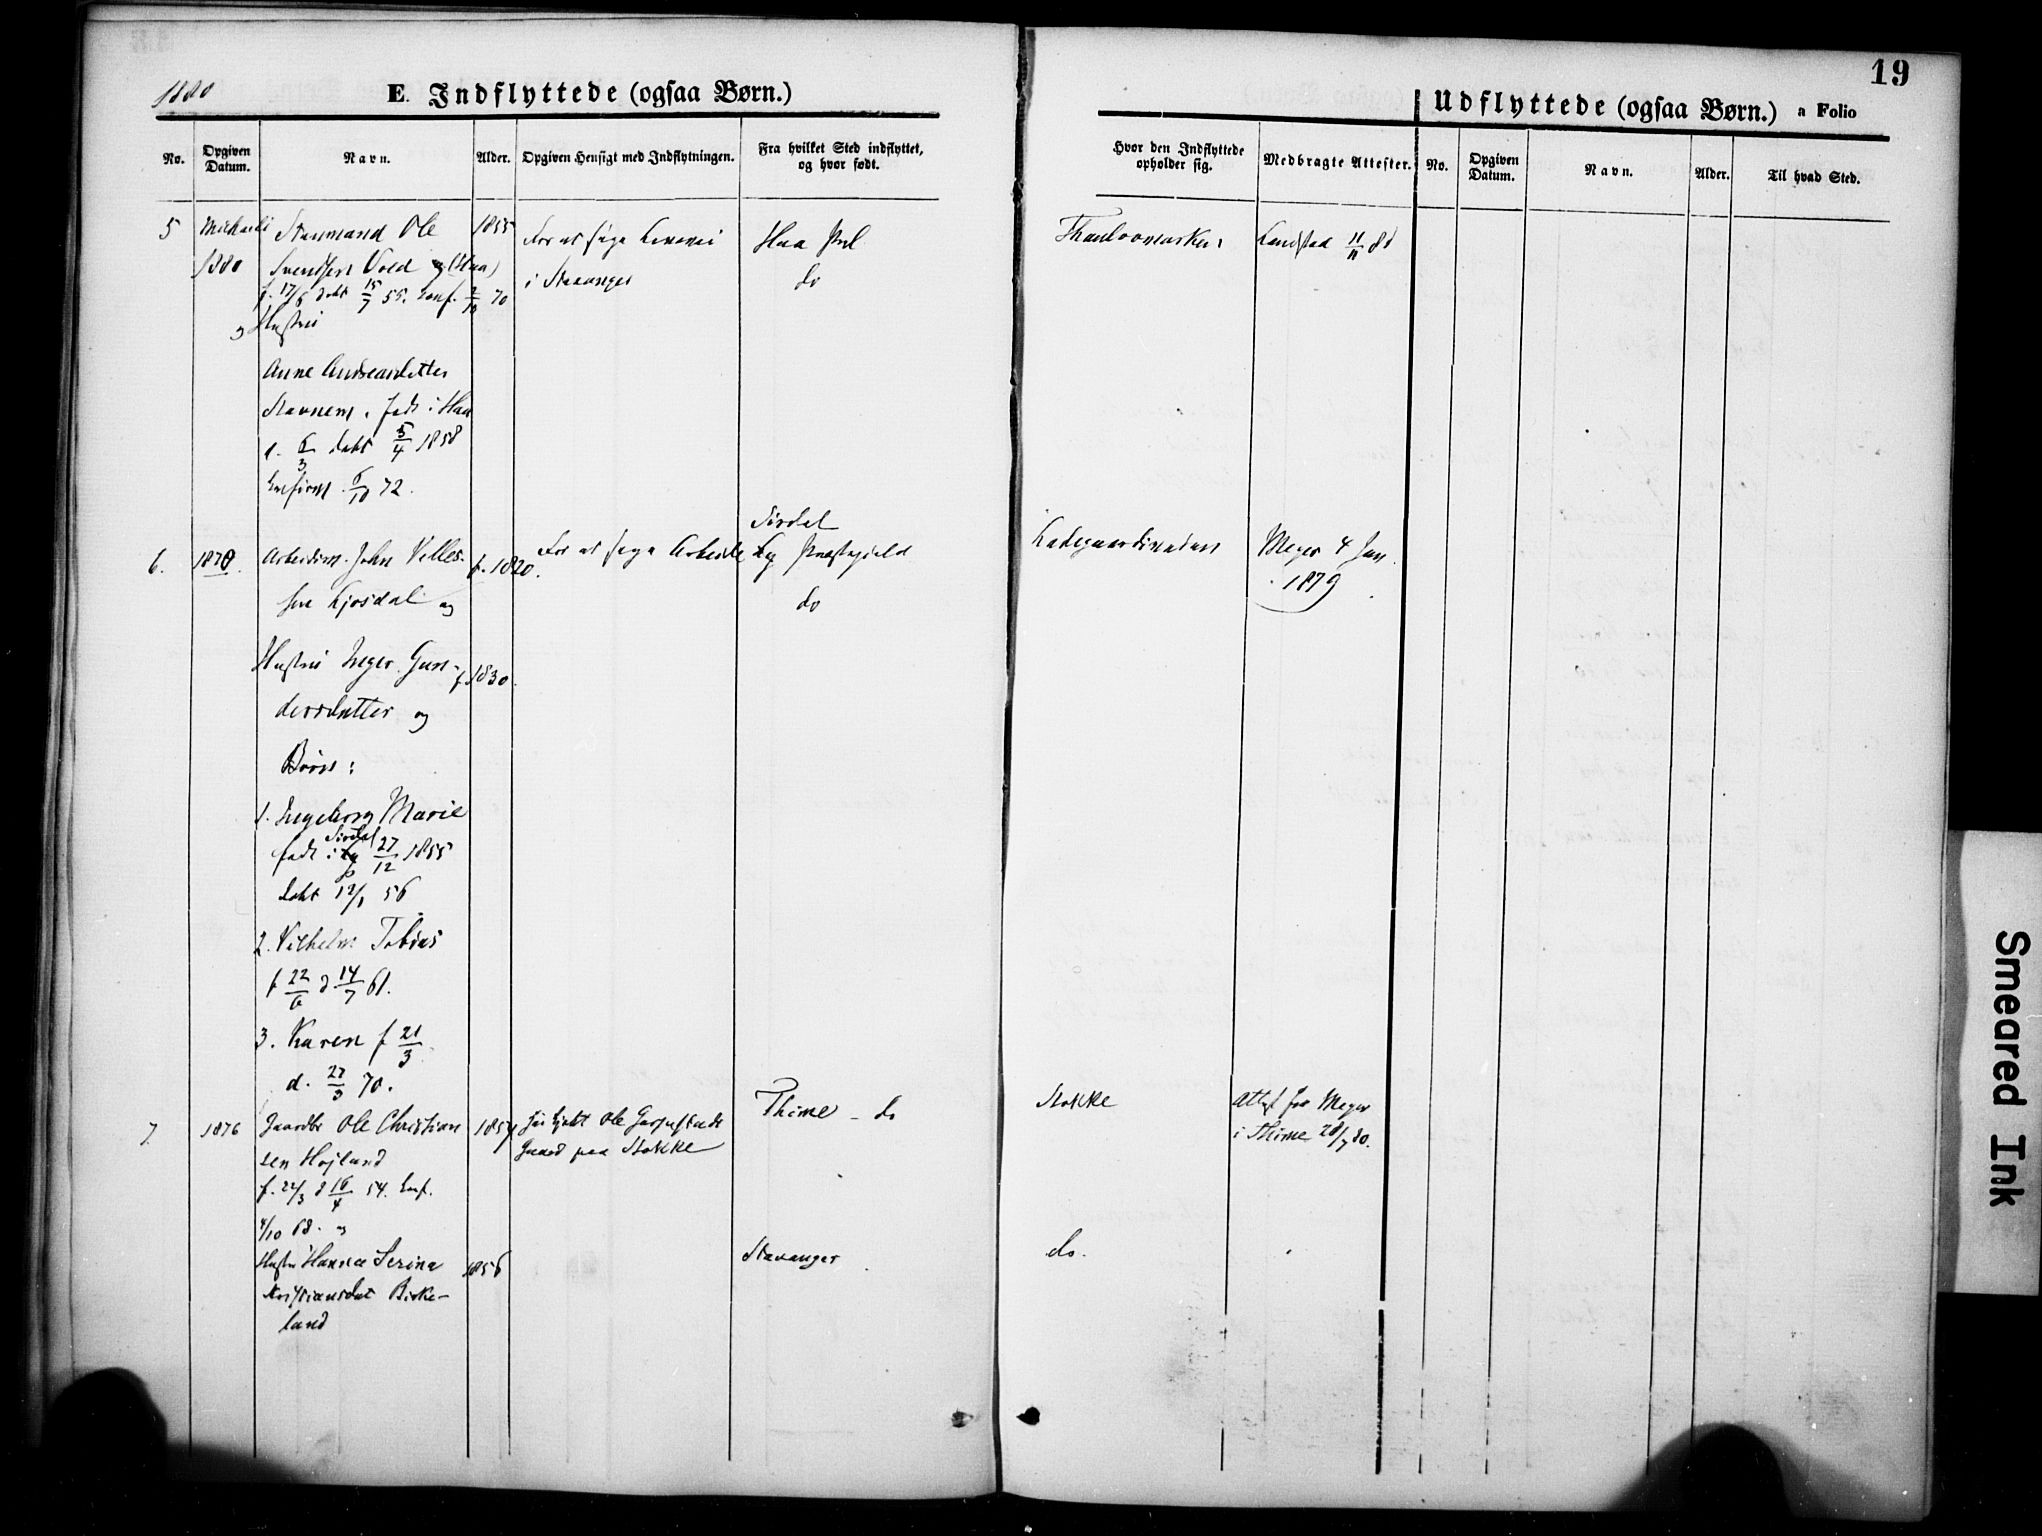 1880
E. Indflyttede (ogsaa Børn.)
No.
Opgiven Datum.
Navn.
Alder.
Opgiven Hensigt med Indflytningen.
Fra hvilket Sted indflyttet, og hvor født.
5
Michaeli
1880
Ole
Svendsen Vold (Haa)
f. 17/6 døbt 15/7 55. Conf. 2/10 70
og Hustru
Anne Andreasdatter
Stavnem, født i Haa
6/3 døbt 5/4 1858
Confirm. 6/10 72.
1855
For at søge Levevei
i Stavanger
Haa Pgl
do
6.
1878.
Arbeidsm. John Villes-
sen Kjosdal og
Hustru Inger Gun-
dersdatter og
Børn:
1. Ingeborg Marie
født i Sirdal 27/12 1855
døbt 12/1 56
2. Vilhelm Tobias
f 22/6 d 14/7 61.
3. Karen f 21/3
d. 27/3 70.
f. 1820.
f. 1830.
For at søge Arbeide
Sirdal
Præstegjeld
do
7
1876
Gaardbr Ole Christian
sen Højland
f. 22/3 d 16/4 54. Conf.
4/10 68. og
Hustru Hanna Serina
Kristiansdat Birke-
land
1854
1856
har kjøbt Ole
Gaard paa Stokke
Thime - do
Stavanger
19
Udflyttede (ogsaa Børn.) a Folio
Hvor den Indflyttede opholder sig.
Medbragte Attester.
No.
Opgiven Datum.
Navn.
Alder.
Til hvad Sted.
Landstad 11/11 81
Ladegaardsveien
Meyer 4 Jan.
1879
Stokke
Attest fra Meyer
i Thime 28/7 80.
do.
Smeared Ink